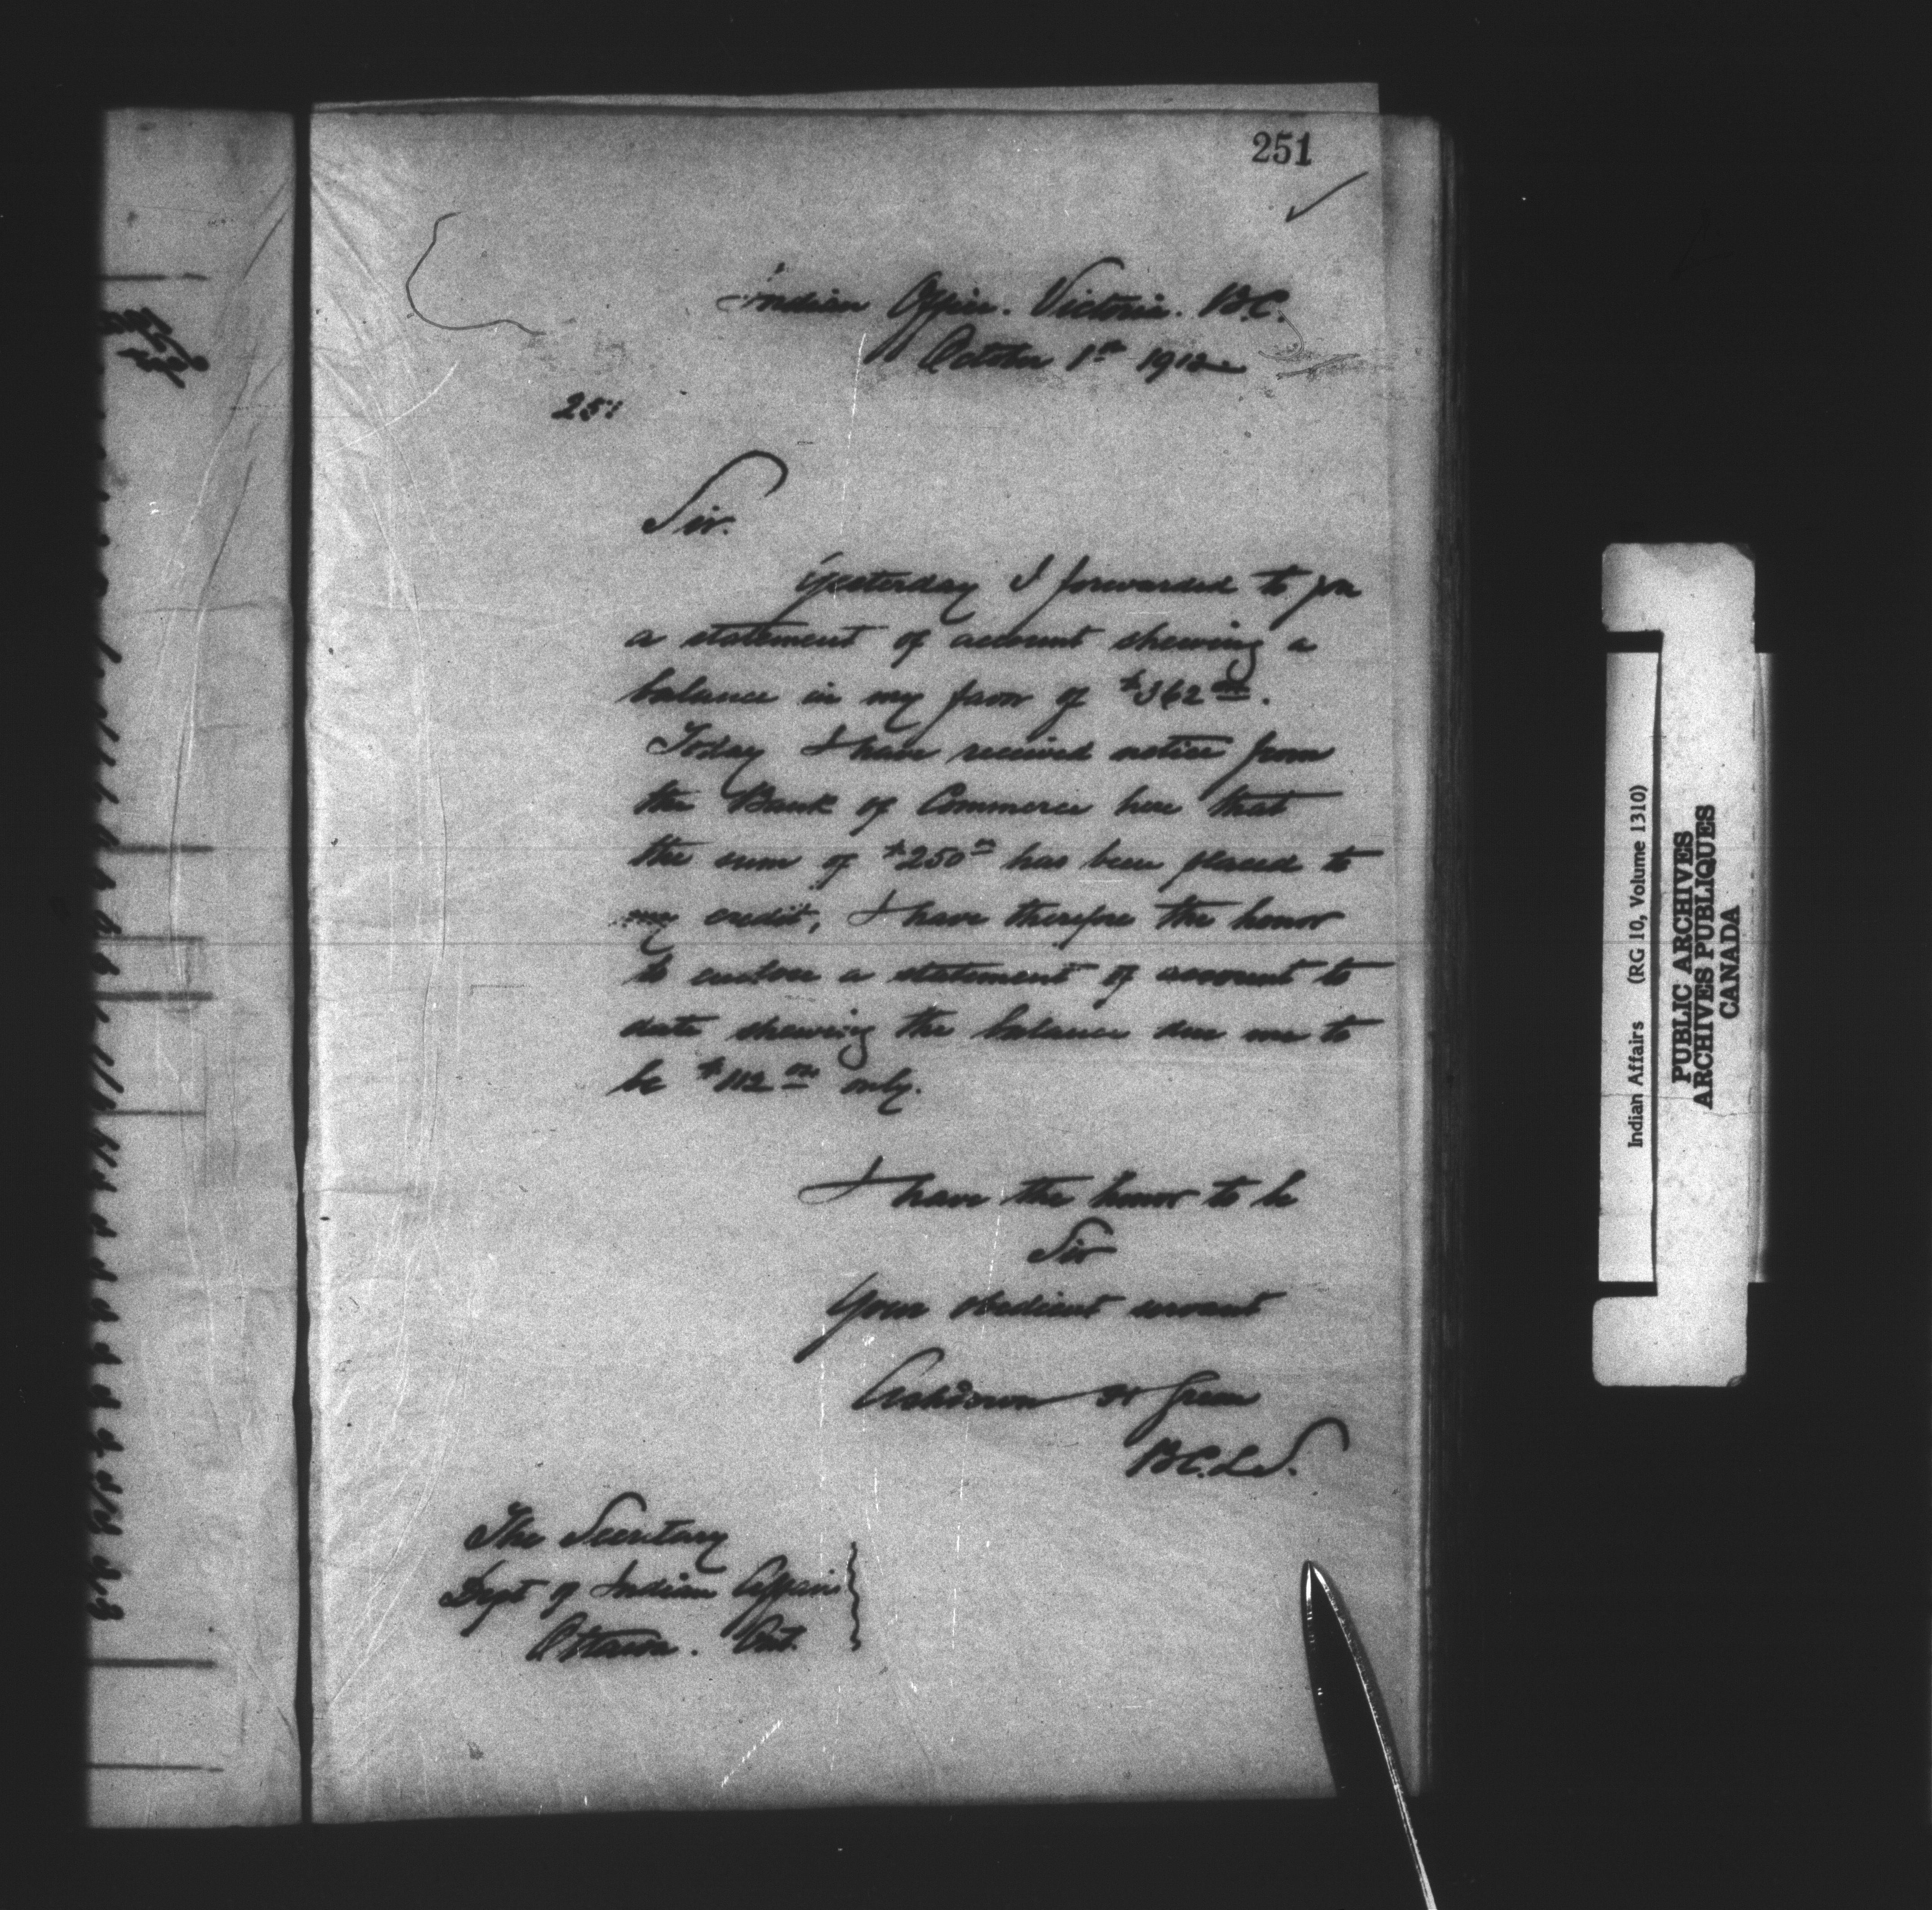 251
Indian Office. Victoria. B.C.
October 1st 1912
251
Sir.
Yesterday I forwarded to you
a statement of account shewing a
balance in my favor of $362.
Today I have received notice from
the Bank of Commerce here that
the sum of $250 has been placed to
my credit, I have therefore the honor
to enclose a statement of account to
date shewing the balance due me to
be $112 only.
I have the honor to be
Sir
Your obedient servant
Ashdown H Green
B.C.L.S.
The Secretary
Dept of Indian Affairs
Ottawa. Ont.
Indian Affairs (RG 10, Volume 1310)
PUBLIC ARCHIVES
ARCHIVES PUBLIQUES
CANADA